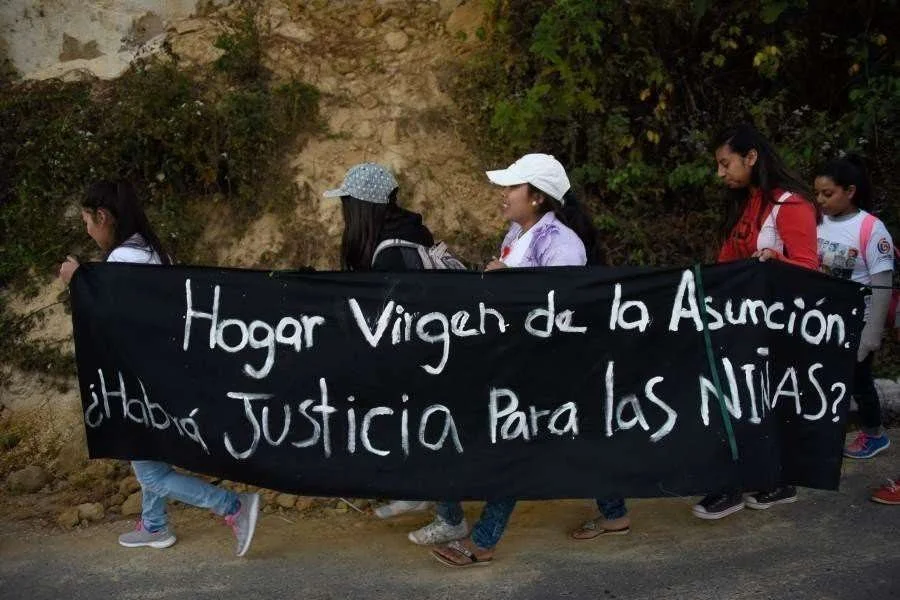 Hogar Virgen de la Asunción:
¿Habrá Justicia Para las NIÑAS?